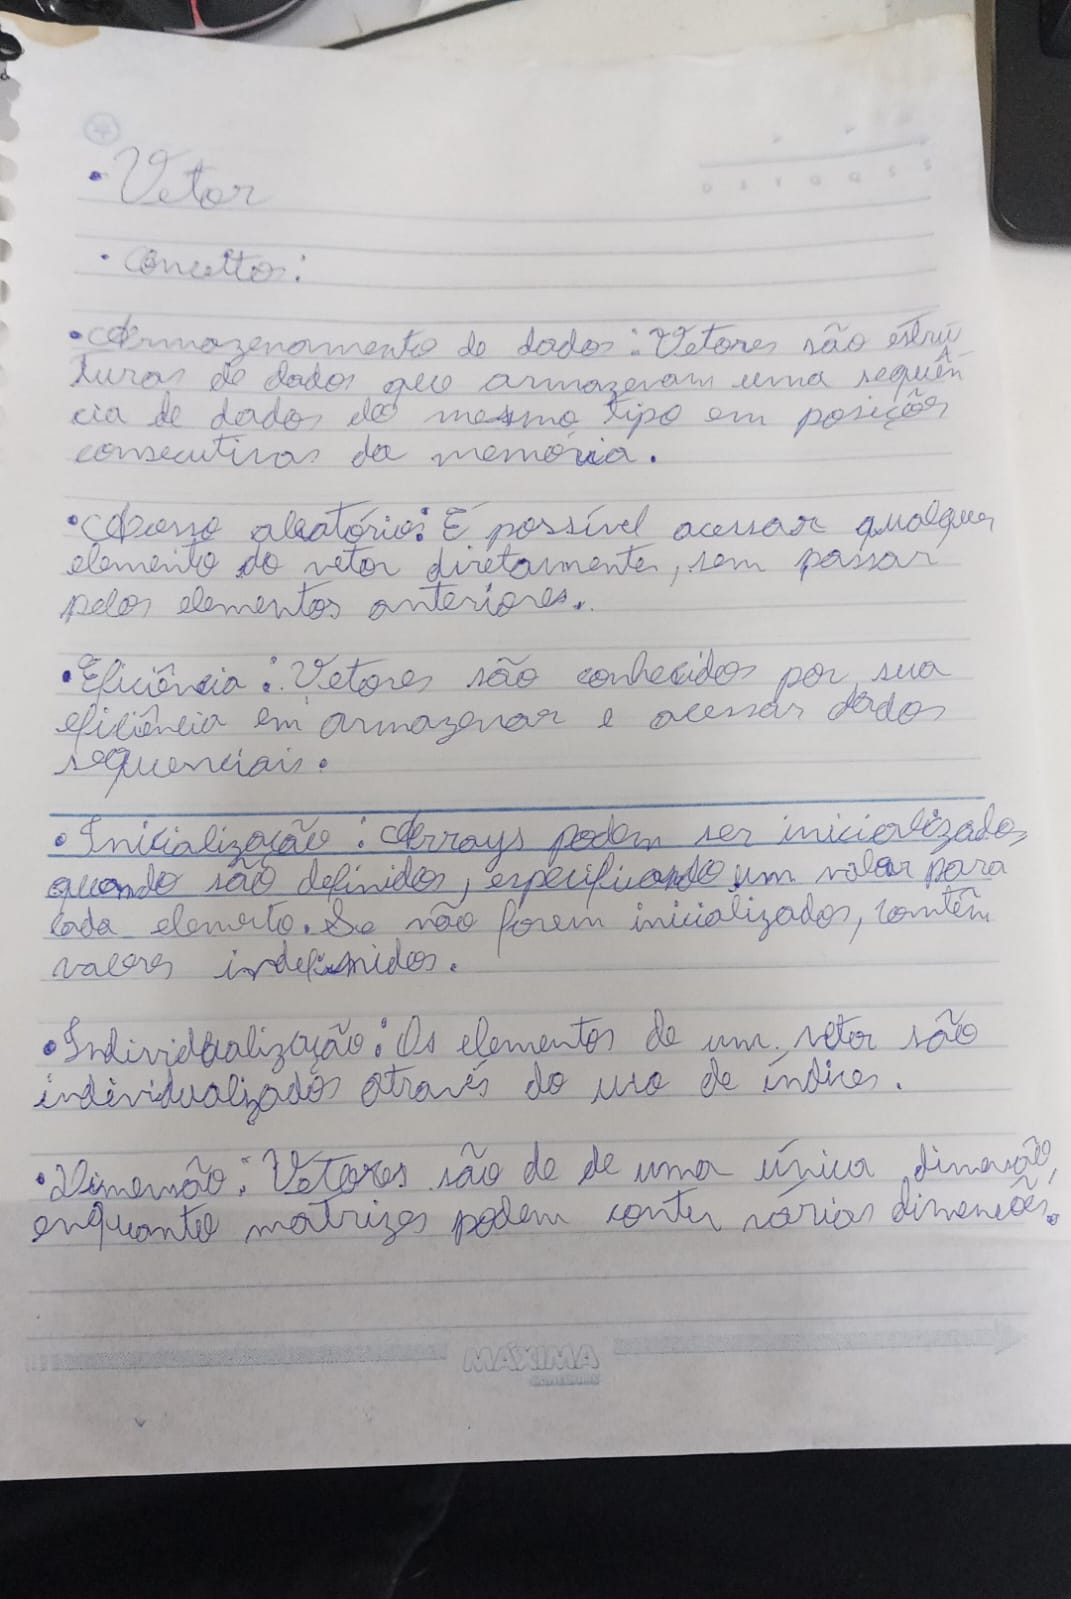 • Vetor
• Conceitos:
• Armazenamento de dados: Vetores são estru
turas de dados que armazenam uma sequên
cia de dados do mesmo tipo em posições
consecutivas da memória.
• Acesso aleatório: É possível acessar qualquer
elemento do vetor diretamente, sem passar
pelos elementos anteriores.
• Eficiência: Vetores são conhecidos por sua
eficiência em armazenar e acessar dados
sequenciais.
• Inicialização: Arrays podem ser inicializados
quando são definidos, especificando um valor para
cada elemento. Se não forem inicializados, contêm
valores indefinidos.
• Individualização: Os elementos de um vetor são
individualizados através do uso de índices.
• Dimensão: Vetores são de de uma única dimensão,
enquanto matrizes podem conter várias dimenções.
MÁXIMA